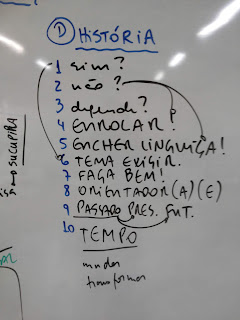 ① HISTÓRIA
1 sim?
2 não?
3 depende?
4 ENROLAR!
5 ENCHER LINGUIÇA!
6 TEMA EXIGIR.
7 FAÇA BEM!
8 ORIENTADOR(A)(E)
9 PASSADO PRES. FUT.
10 TEMPO
mudar
transformar
SUCUPIRA